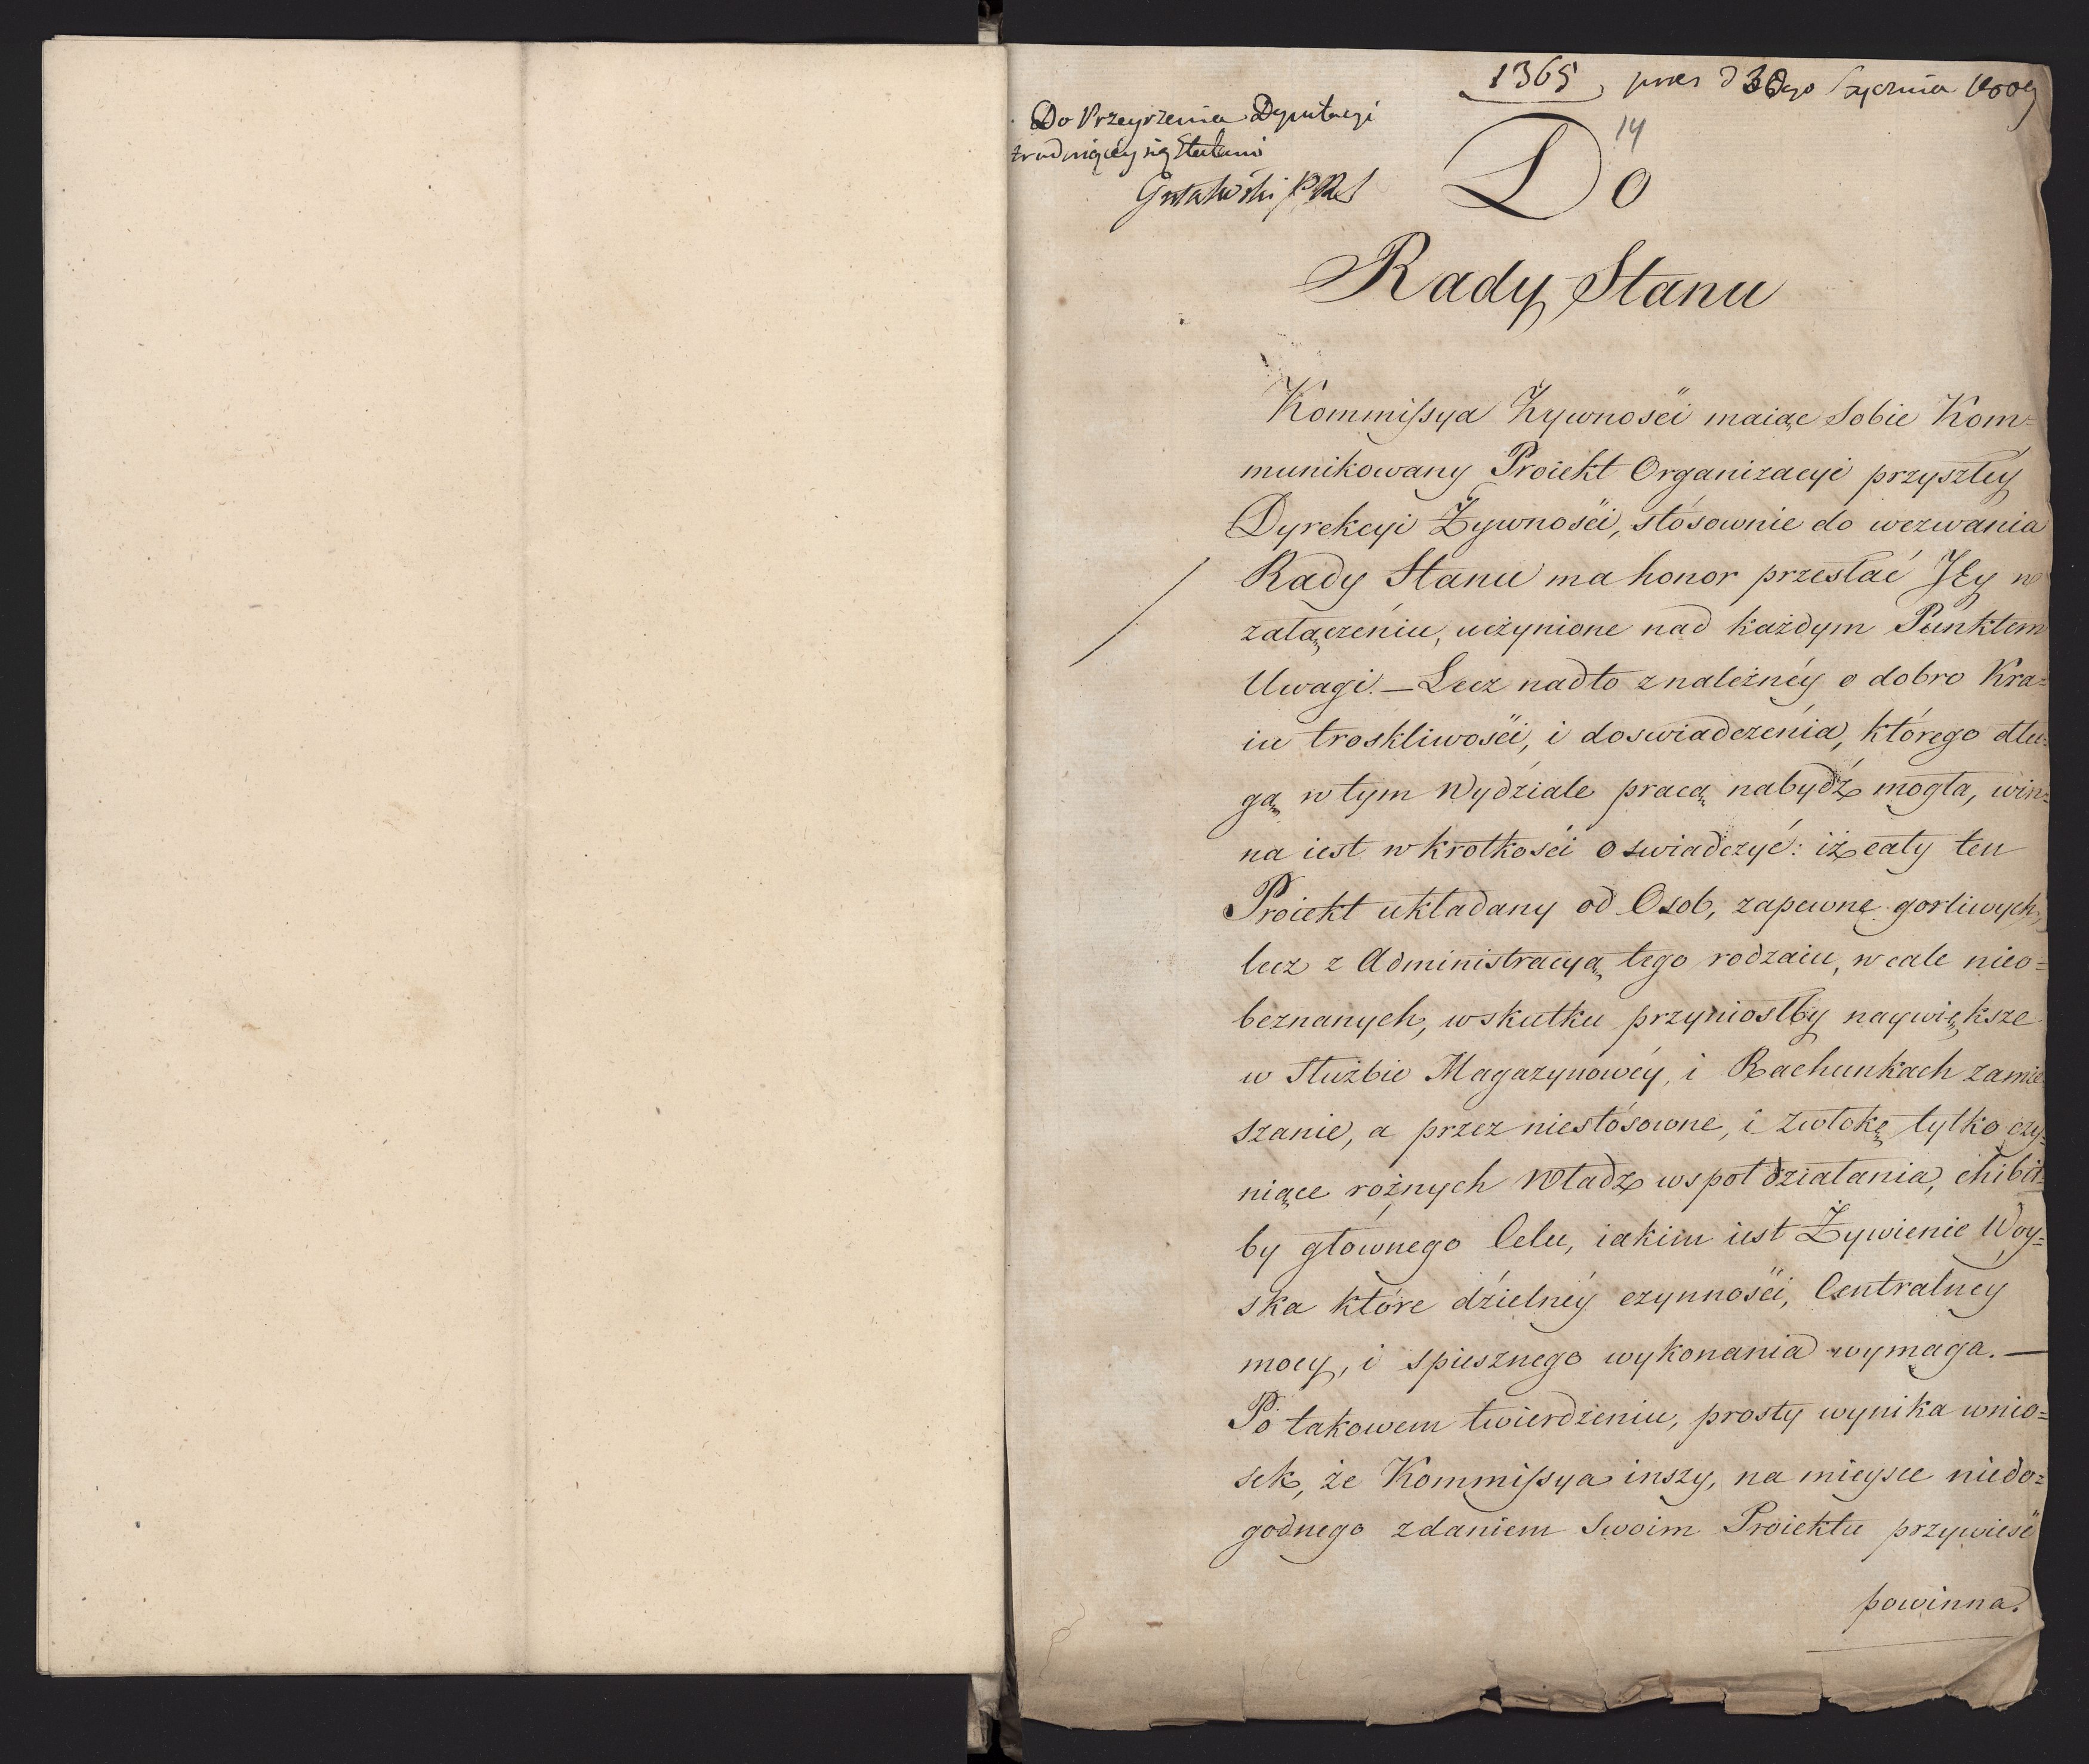 1365, prs d 30go Stycznia 1809
14
Do Przeyrzenia Deputacyi
trudniącéy się Etatami
Gutakowski PRS
Do
Rady Stanu
Kommissya Zywności maiąc Sobie Kom=
munikowany Proiekt Organizacyi przyszłéy
Dyrekcyi Żywności, stósownie do wezwania
Rady Stanu ma honor przesłać Jéy w
załączeniu, uczynione nad każdym Punktem
Uwagi. — Lecz nadto z należnéy o dobro Kra=
iu troskliwości, i doswiadczenia, którego dłu=
gą w tym Wydziale pracą nabydź mogła, win=
na iest w krotkości oswiadczyć: iż cały ten
Proiekt układany od Osob, zapewne gorliwych,
lecz z Administracyą tego rodzaiu, wcale nieo=
beznanych, w skutku przyniosłby naywiększe
w Służbie Magazynowéy, i Rachunkach zamie
szanie, a przez niestósowne, i zwłokę tylko czy=
niące rożnych Władz wspołdziałania, chibił=
by głównego Celu, iakim iest Żywienie Woy=
ska które dzielnéy czynności, Centralney
mocy, i spiesznego wykonania wymaga. —
Po takowem twierdzeniu, prosty wynika wnio=
sek, że Kommissya inszy, na mieysce niedo=
godnego zdaniem Swoim Proiektu przywieść
powinna.